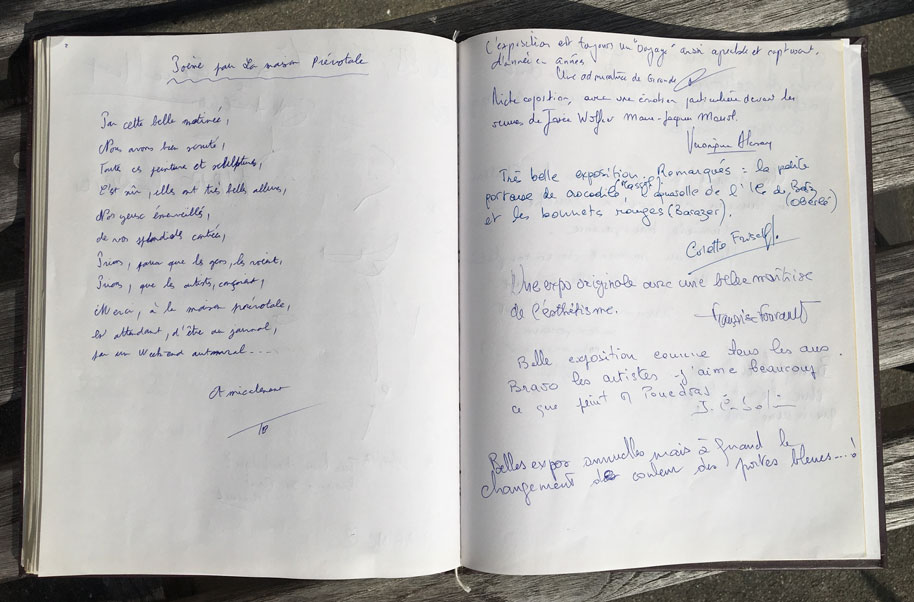 Poème par La maison Prévotale
Par cette belle matinée,
Nous avons bien scruté,
Toute ces peinture et sculpture,
C'est sûr, elles ont très belle allure,
Nos yeux émerveillés,
de vos splendides
Prions, pour que les gens, les voient,
Prions, que les artistes,
Merci, à la maison prévotale,
en attendant, d'être au journal,
par un week-end automnal....
Amicalement
L'exposition est toujours un "voyage" aussi agréable et captivant.
d'année en années
Une admiratrice de
Riche exposition, avec une émotion particulière devant les
œuvres de Marc-Jacques
Véronique
Très belle exposition. Remarqués : la petite
porteuse de crocodile, l'aquarelle de l'Ile de Batz
(Oberlé)
et les bonnets rouges (Barazer).
Colette
Une expo originale avec une belle maîtrise
de l'esthétisme.
Belle exposition comme tous les ans.
Bravo les artistes - j'aime beaucoup
ce que peint M Pouedras
Belles expos annuelles mais à quand le
changement de couleur des portes bleues...!